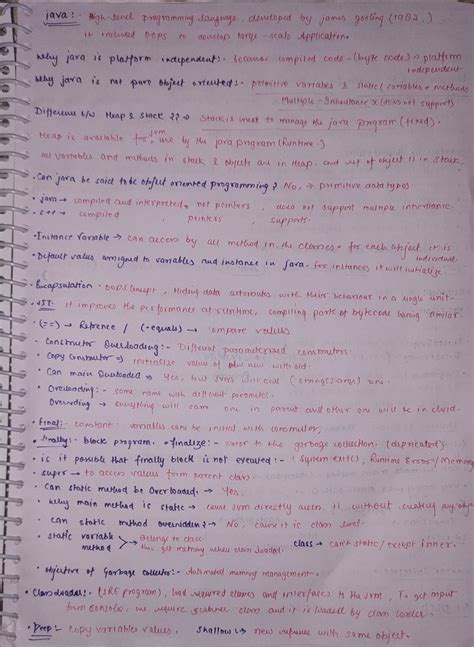 java :- High-level programming language, developed by james gosling (1982..)
it included OOPS to develop large-scale Application.
Why java is platform independent:- because compiled code - (byte code) → platform independent
Why java is not pure object oriented:- primitive variables & static (variables + methods
Multiple-Inheritance X (does not support)
Difference b/w Heap & stack ?? → Stack is used to manage the java program (fixed).
Heap is available for jvm use by the java program (Runtime.)
all variables and methods in stack & objects are in Heap. and ref of object is in stack.
• Can java be said to be object oriented programming? No, → primitive datatypes.
• java → compiled and interpreted, no pointers, does not support multiple inheritance.
• C++ → compiled , pointers , supports.
• Instance Variable → can access by all method in the classes • for each object it is individual.
• Default values assigned to variables and instance in java. for instances it will initialize
• Encapsulation - OOPS concept, Hiding data attributes with their behaviour in a single unit.
• JIT: it improves the performance at runtime, compiling parts of bytecode having similar.
• (==) → Refrence / (.equals) → compare values
• Constructor Overloading:- Different parameterized constructors.
• Copy Constructor → initialize value of new with old.
• Can main Overloaded → Yes, but JVM will call (string[] args) one.
• Overloading:- same name with different parameter.
Overriding → everything will same one in parent and other one will be in child.
• Final: constant variables can be initied with constructor,
• finally:- block program. • finalize:- prior to the garbage collection. (depricated).
• is it possible that finally block is not executed:- (System.exit(), Runtime Errors/Memory
• super → to access values from parent class
• Can static method be Overloaded. → Yes,
• Why main method is static → cause jvm directly access it without creating any object
• can static method overridden? → No, cause it is class level.
• static variable method → Belongs to class. has get memory when class loaded. class → can't static/except inner.
• Objective of Garbage Collector:- Automated memory management.
• Class loader:- (JRE program), load required classes and interfaces to the JVM, To get input
form console, we require scanner class and it is loaded by class loader
• Deep:- Copy variables values, shallow:→ new refrence with same object.